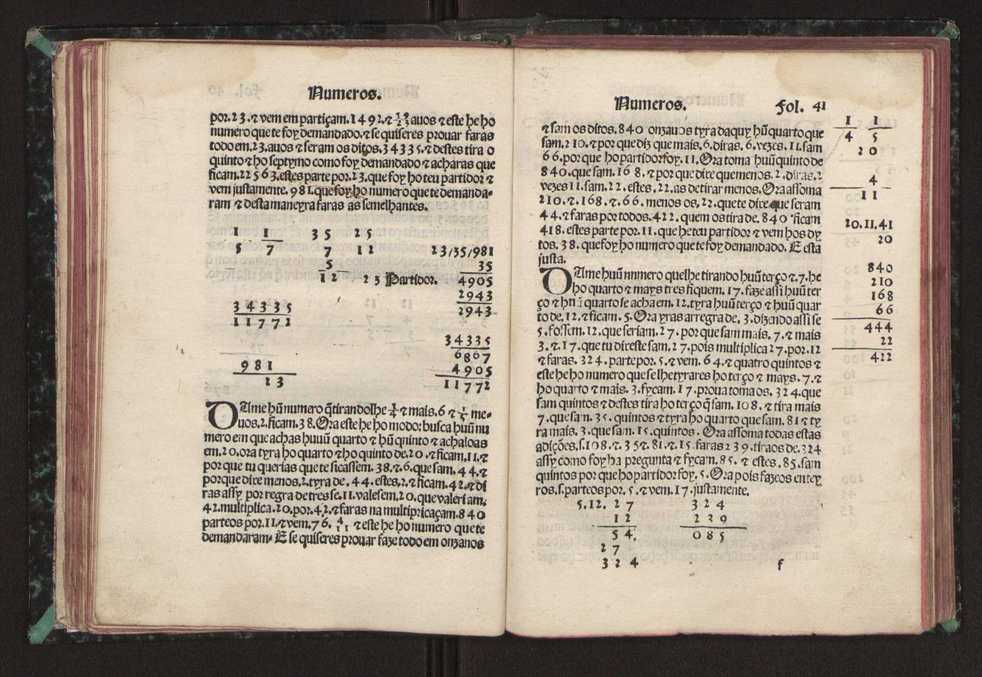 Numeros.
por.23.⁊ vem em partiçam.1492.⁊ avos ⁊ este he ho
numero que te foy demandado.⁊ se quiseres prouar faras
todo em.23.auos ⁊ seram os ditos.34335.⁊ destes tira o
quinto ⁊ ho septyno como foy demandado ⁊ acharas que
ficam.22563.estes parte por.23.que foy ho teu partidor ⁊
vem justamente. 981.que foy ho numero que te demanda-
ram ⁊ desta maneyra faras as semelhantes.
1 1 35 25
5 7 7 12 23/35/981
5 35
12 23 Partidor. 4905
2943
34335 2943
11772
34335
6867
981 4905
23 11772
DAime hũ numero q̃ tirandolhe ¼ ⁊ mais.6 ⁊ ⅕ me-
uos.2.ficam.38.Ora este he ho modo: busca huũ nu
mero em que achas huũ quarto ⁊ hũ quinto ⁊ achaloas
em.20.ora tyra ho quarto ⁊ ho quinto de.20.⁊ ficam.11.⁊
porque tu querias que te ficassem.38.⁊.6.que sam.44.⁊
por que dixe menos.2.tyra de.44.estes.2.⁊ ficam.42.⁊ di
ras assy por regra de tres se.11.valesem.20.que valeriam.
42.multiplica.20.por.42.⁊ faras na multipricaçam.840
parteos por.11.⁊ vem.76. 4/11 ⁊ este he ho numero que te
demandaram. E se quiseres prouar faze todo em onzanos
Numeros. Fol. 41
⁊ sam os ditos.840 onzauos tyra daquy hũ quarto que
sam.210.⁊ por que diz que mais.6.diras.6.vezes.11.sam
66.por que ho partidor foy.11.Ora toma huũ quinto de
840.que sam.168.⁊ por que dixe que menos.2.diras.2
vezes 11.sam.22.estes.22.as de tirar menos.Ora assoma
210.⁊.168.⁊.66.menos os.22.que te dice que seram
44.⁊ faras por todos.422.quem os tira de.840 ficam
418.estes parte por.11.que he teu partidor ⁊ vem hos dy
tos.38.que foy ho numero que te foy demandado. E esta
justa.
DAime huũ numero que lhe tirando huũ terço ⁊.7.he
ho quarto ⁊ mays tres fiquem.17.faze assi huũ ter
ço ⁊ hũ quarto se acha em.12.tyra huũ terço ⁊ huũ quar
to de.12.⁊ ficam.5.Ora yras a regra de.3.dizendo assi se
5.fossem.12.que seriam.27.por que sam mais.7.⁊ mais
3.⁊.17.que tu dixeste sam.27.pois multiplica 27.por.12
⁊ faras.324.parte por.5.⁊ vem.64.⁊ quatro quintos ⁊
este he ho numero que se lhe tyrares ho terço ⁊ mays.7.⁊
ho quarto ⁊ mais.3.fycam.17.proua toma os.324.que
sam quintos ⁊ destes tira ho terço q̃ sam.108.⁊ tira mais
7.que sam.35.quintos ⁊ tyra ho quarto que sam.81 ⁊ ty
ra mais.3.que sam.15.quintos.Ora assoma todas estas
adições.s.108.⁊.35 ⁊.81.⁊.15.faras 239.tiraos de.324
assy como foy ha pregunta ⁊ fycam.85.⁊ estes.85.sam
quintos por que ho partidor foy.5.Ora pois fazeos entey
ros.s.parteos por.5.⁊ vem.17.justamente.
5.12.27 324
12 239
54. 085
27
324 f
1 1
4 5
20
4
11
20.11.41
20
840
210
168
66
444
22
422